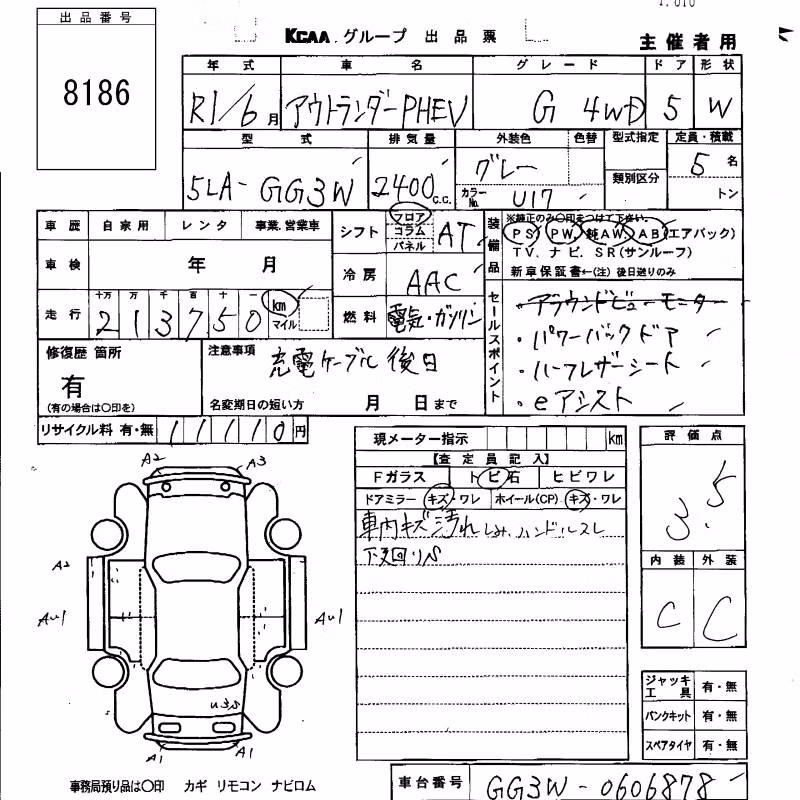 1.010
出品番号
8186
KCAA グループ 出品票
主催者用
年式 車名 グレード ドア 形状
R1/6月 アウトランダーPHEV G 4WD 5 W
型式 排気量 外装色 色替 型式指定 定員・積載
5LA-GG3W 2400 c.c. グレー 類別区分 5名
カラーNo. U17 トン
車歴 自家用 レンタ 事業.営業車
車検 年 月
走行 十万 万 千 百 十 一
213750 km マイル
シフト フロア コラム パネル AT
冷房 AAC
燃料 電気・ガソリン
装備品
※純正のみ〇印をつけて下さい。
PS PW 純AW AB(エアバック)
TV. ナビ. SR(サンルーフ)
新車保証書←(注) 後日送りのみ
セールスポイント
・アラウンドビューモニター
・パワーバックドア
・ハーフレザーシート
・eアシスト
修復歴 箇所
有
(有の場合は〇印を)
注意事項 充電ケーブル 後日
名変期日の短い方 月 日まで
リサイクル料 有・無 11110円
現メーター指示 km
【査定員記入】
Fガラス トビ石 ヒビワレ
ドアミラー キズ・ワレ ホイール(CP) キズ・ワレ
車内キズ汚れ しみ ハンドルスレ
下廻りS
評価点
3.5
内装 外装
C C
A2 A3
A2
AU1 AU1
U3S
A1 A1
ジャッキ工具 有・無
パンクキット 有・無
スペアタイヤ 有・無
事務局預り品は〇印 カギ リモコン ナビロム
車台番号 GG3W-0606878